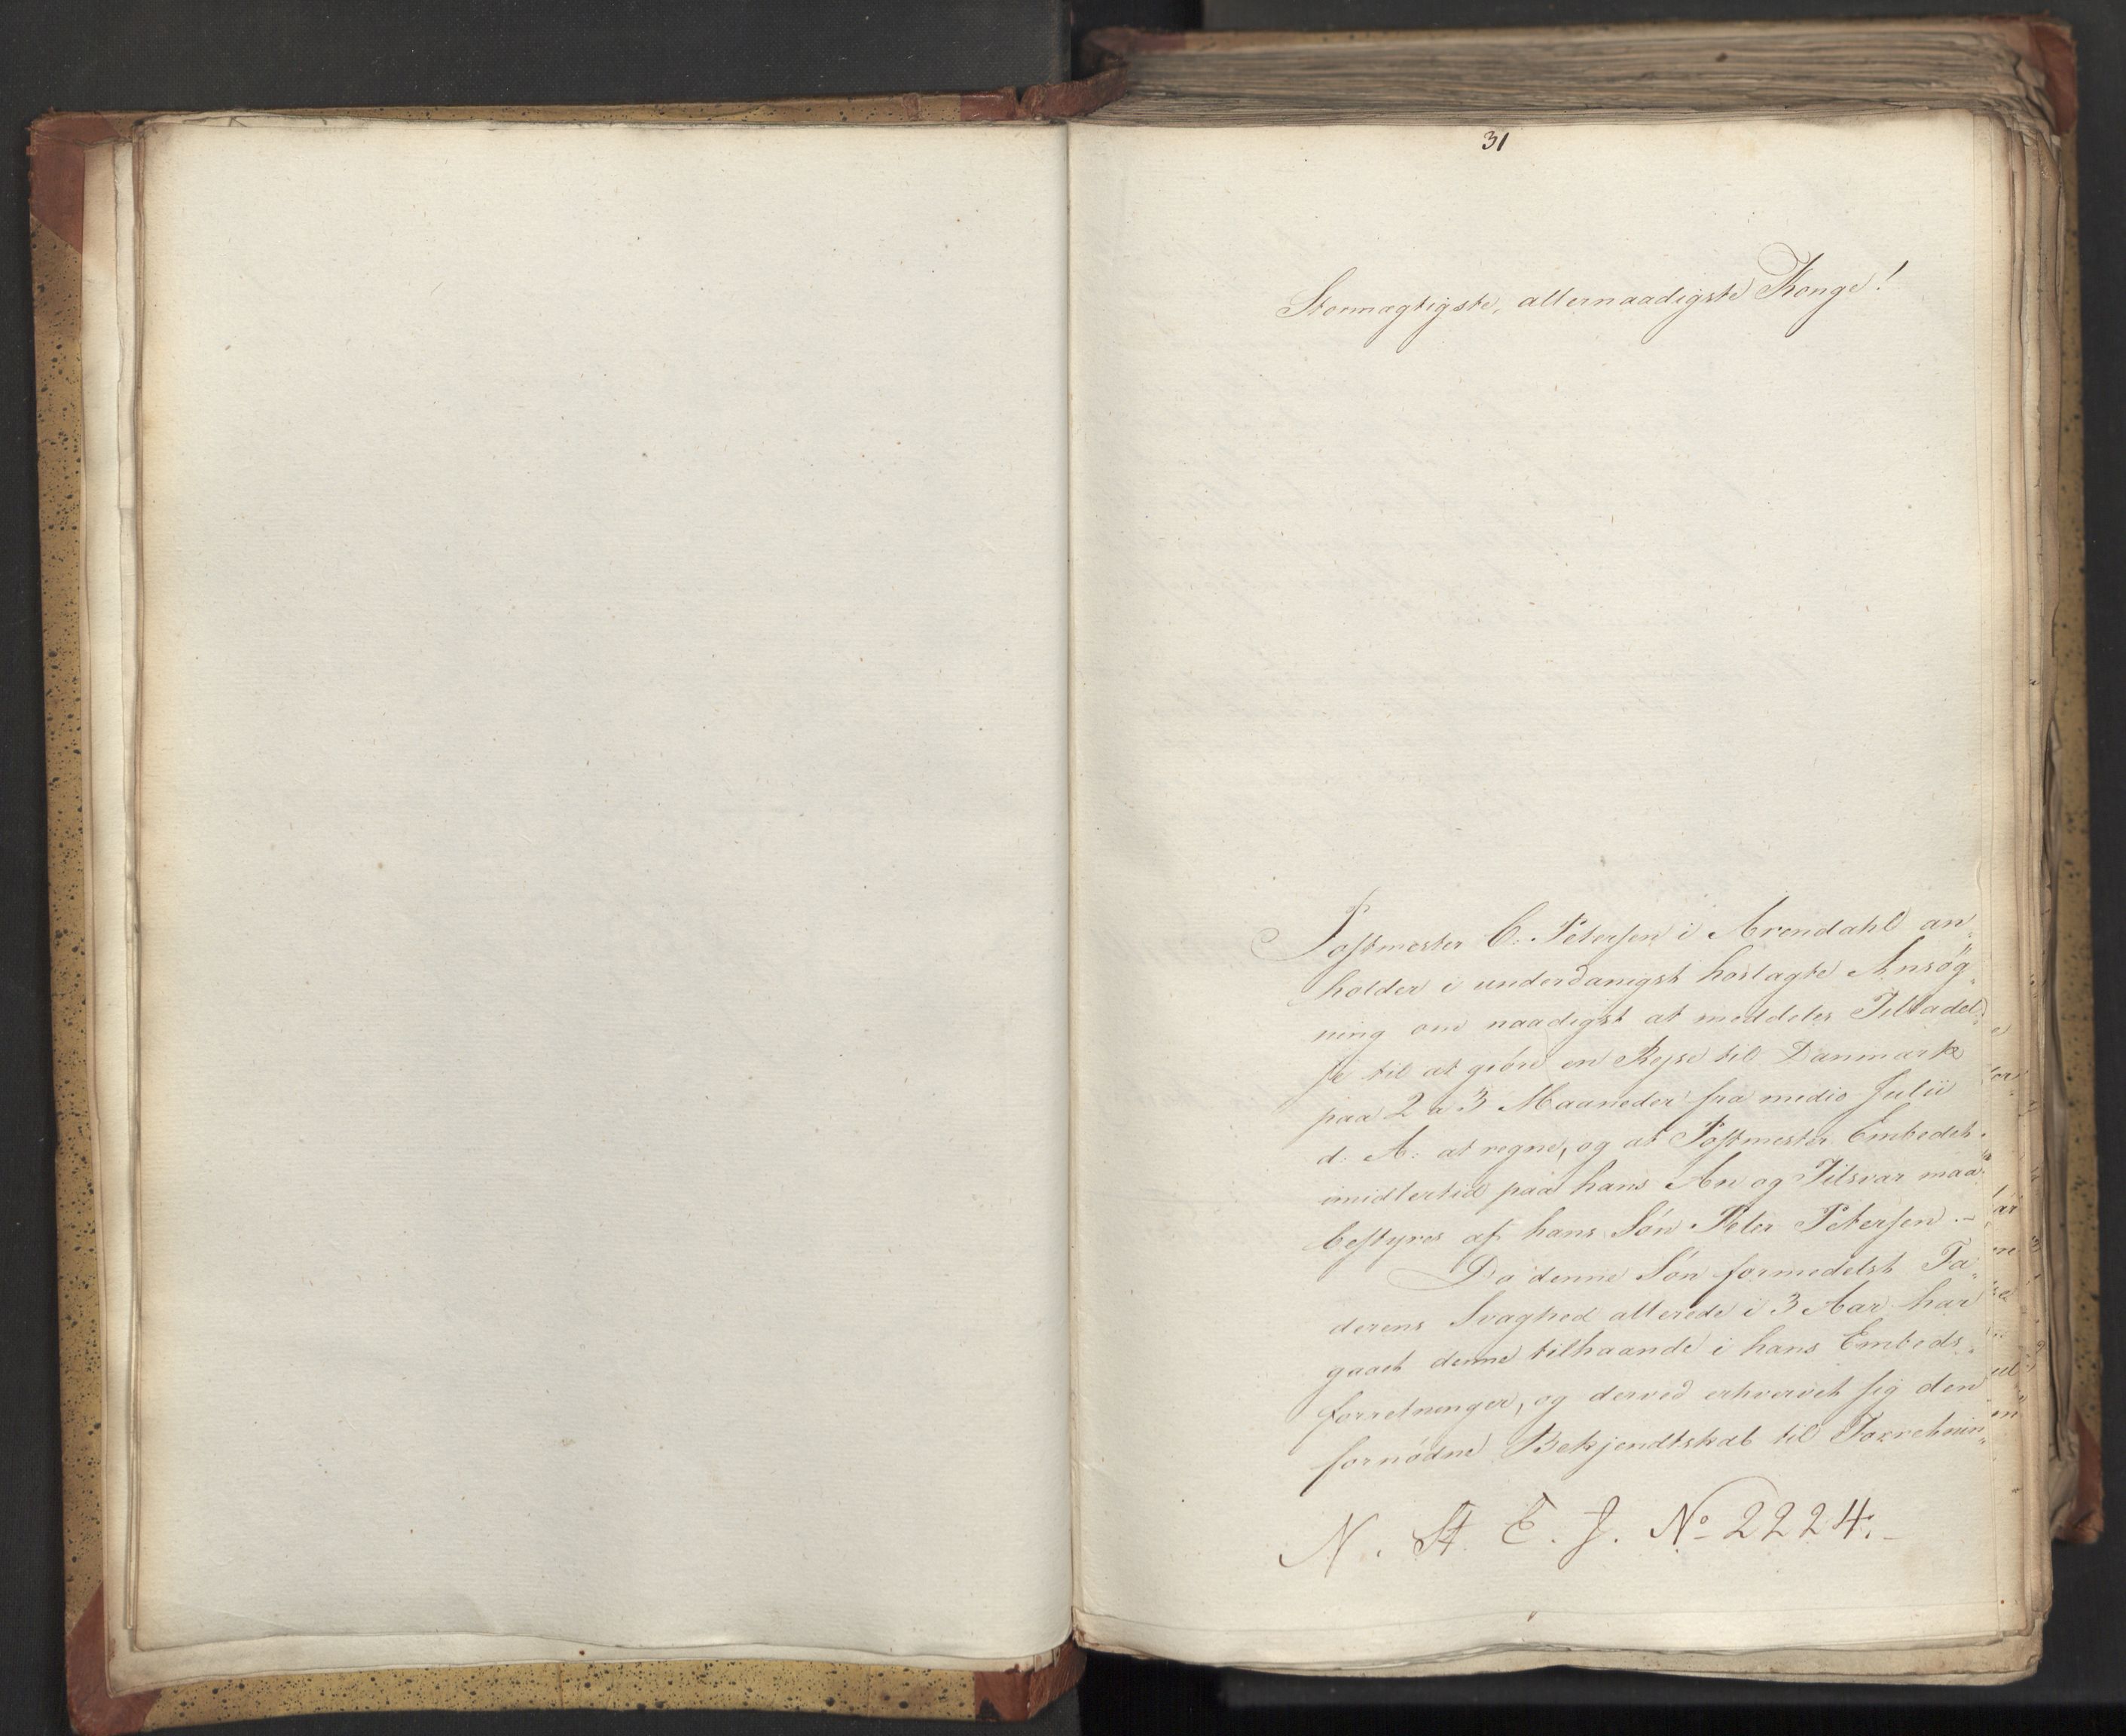 31
Stormægtigste, allernaadigste Konge!
Postmester C: Petersen i Arendahl an„
holder i underdanigst hoslagte Ansøg„
ning om naadigst at meddeles Tilladel„
se til at giöre en Rejse til Danmark
paa 2 a 3 Maaneder fra medio Julii
d: A: at regne, og at Postmester Embedet
imidlertid paa hans An og Tilsvar maa
bestyres af hans Sön Peter Petersen. –
Da denne Sön formedelst Fa„
derens Svaghed allerede i 3 Aar har
gaaet denne tilhaande i hans Embeds„
forretninger, og derved erhvervet sig den
fornödne Bekjendtskab til Forretnin„
N. St. E. J. No 2224. –